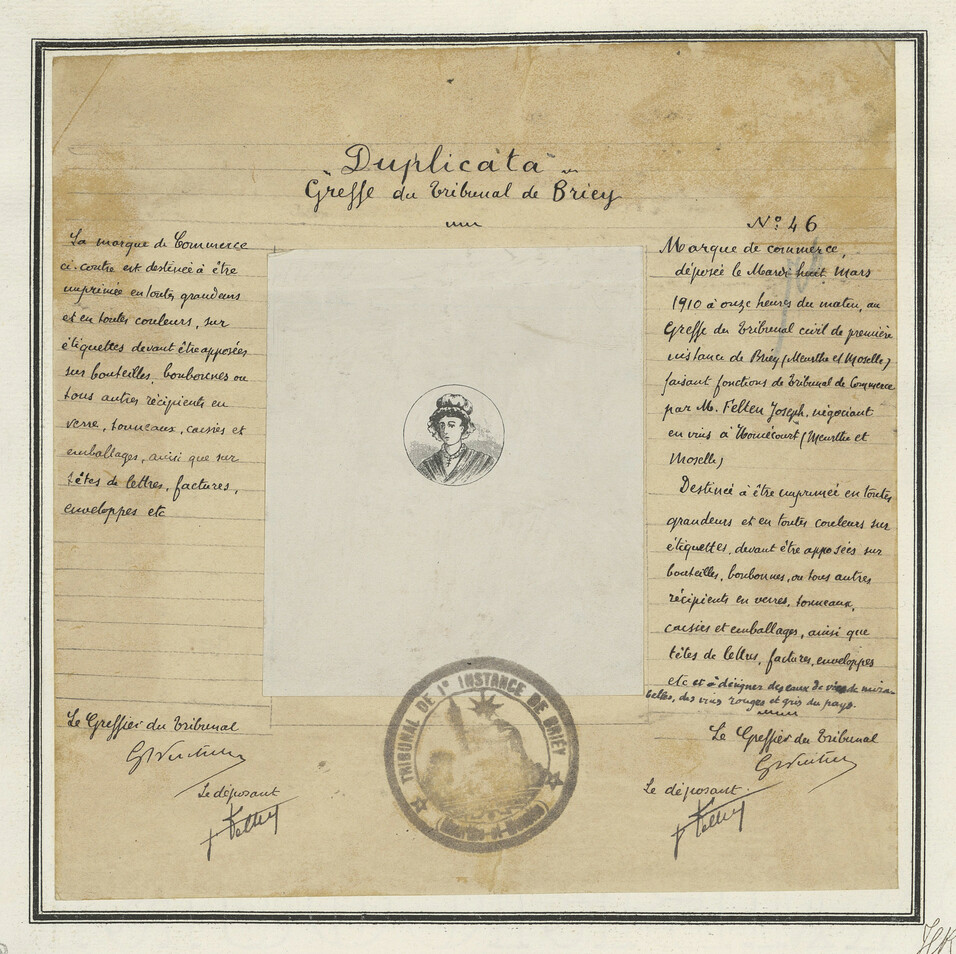 Duplicata
Greffe du Tribunal de Briey
La marque de Commerce
ci-contre est destinée à être
imprimée en toutes grandeurs
et en toutes couleurs, sur
étiquettes devant être apposées
sur bouteilles, bonbonnes ou
tous autres récipients en
verre, tonneaux, caisses et
emballages, ainsi que sur
têtes de lettres, factures,
enveloppes etc
Le Greffier du Tribunal
Le déposant
J Felten
No 46
Marque de commerce,
déposée le Mardi huit Mars
1910 à onze heures du matin, au
Greffe du Tribunal civil de première
instance de Briey (Meurthe et Moselle)
faisant fonctions de Tribunal de Commerce
par M. Felten Joseph, négociant
en vins à Homécourt (Meurthe et
Moselle)
Destinée à être imprimée en toutes
grandeurs et en toutes couleurs sur
étiquettes, devant être apposées sur
bouteilles, bonbonnes, ou tous autres
récipients en verres, tonneaux,
caisses et emballages, ainsi que
têtes de lettres, factures, enveloppes
etc et à désigner des eaux de vie de mira-
belles, des vins rouges et gris du pays.
Le Greffier du Tribunal
Le déposant
J Felten
TRIBUNAL DE 1e INSTANCE DE BRIEY
(Meurthe-et-Moselle)